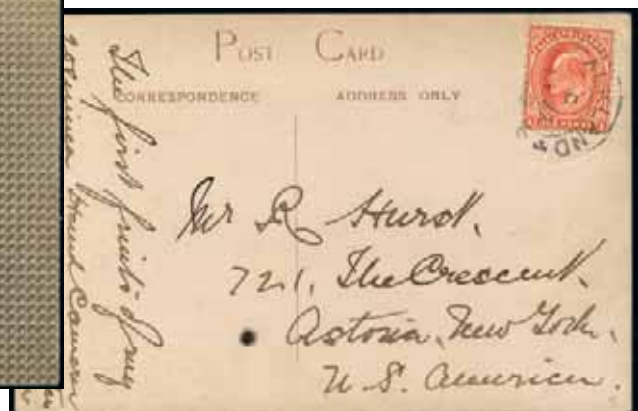 POST CARD
CORRESPONDENCE ADDRESS ONLY
The first fruits of my
Hand Camera
Mr R Hurst.
721, The Crescent.
Astoria, New York.
U.S. America.